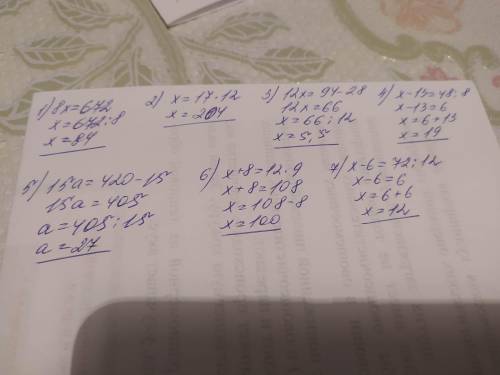 1) 8x=672
x=672:8
x=84
2) x=17·12
x=204
3) 12x=94-28
12x=66
x=66:12
x=5,5
4) x-13=48:8
x-13=6
x=6+13
x=19
5) 15a=420-15
15a=405
a=405:15
a=27
6) x+8=12·9
x+8=108
x=108-8
x=100
7) x-6=72:12
x-6=6
x=6+6
x=12